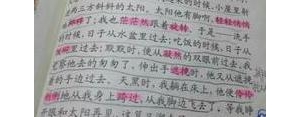 的时候，小屋里射
进两三方斜斜的太阳。太阳他有脚啊，轻轻悄悄
地挪移了；我也茫茫然跟着旋转。于是——洗手
的时候，日子从水盆里过去；吃饭的时候，日子从
饭碗里过去；默默时，便从凝然的双眼前过去。我
觉察他去的匆匆了，伸出手遮挽时，他又从遮挽
着的手边过去，天黑时，我躺在床上，他便伶伶
俐俐地从我身上跨过，从我脚边飞去了。等我睁
开眼和太阳再见，这算又溜